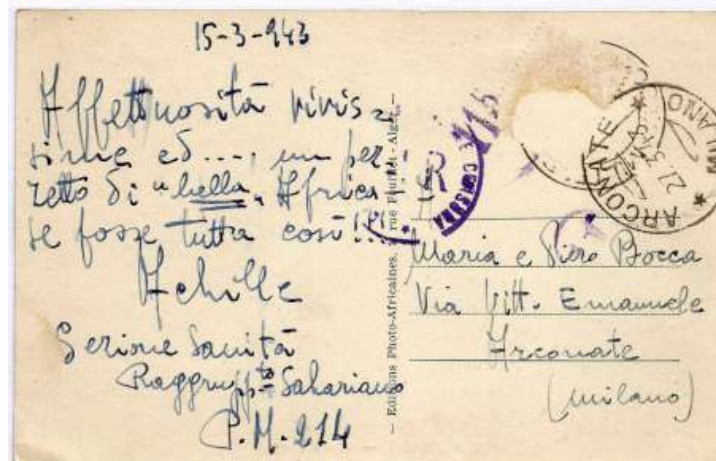 15-3-943
Affettuosità vivis-
sime ed.... un pez-
zetto di "bella" Africa
se fosse tutta così!!..
Achille
Sezione Sanità
Raggrupp.to Sahariano
P.M. 214
— Editions Photo-Africaines, rue Alger. —
115
R
CENSURA
ARCONATE
MILANO
Maria e Piero Bocca
Via Vitt. Emanuele
Arconate
(Milano)